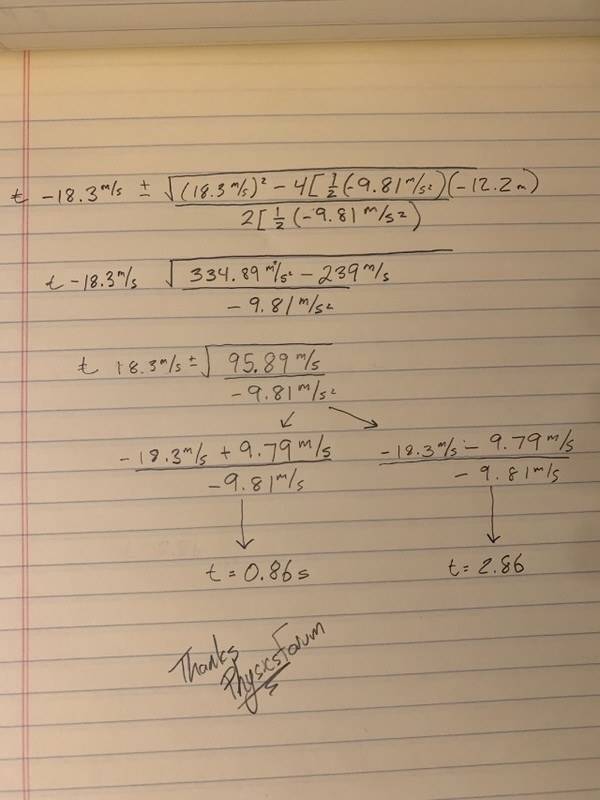 t -18.3 m/s ± √(18.3 m/s)² - 4[½(-9.81 m/s²)(-12.2m)
2[½(-9.81 m/s²)
t -18.3 m/s √334.89 m²/s² - 239 m/s
-9.81 m/s²
t 18.3 m/s ± √95.89 m/s
-9.81 m/s²
-18.3 m/s + 9.79 m/s
-9.81 m/s
-18.3 m/s - 9.79 m/s
-9.81 m/s
t = 0.86 s
t = 2.86
Thanks
PhysicsForum
s